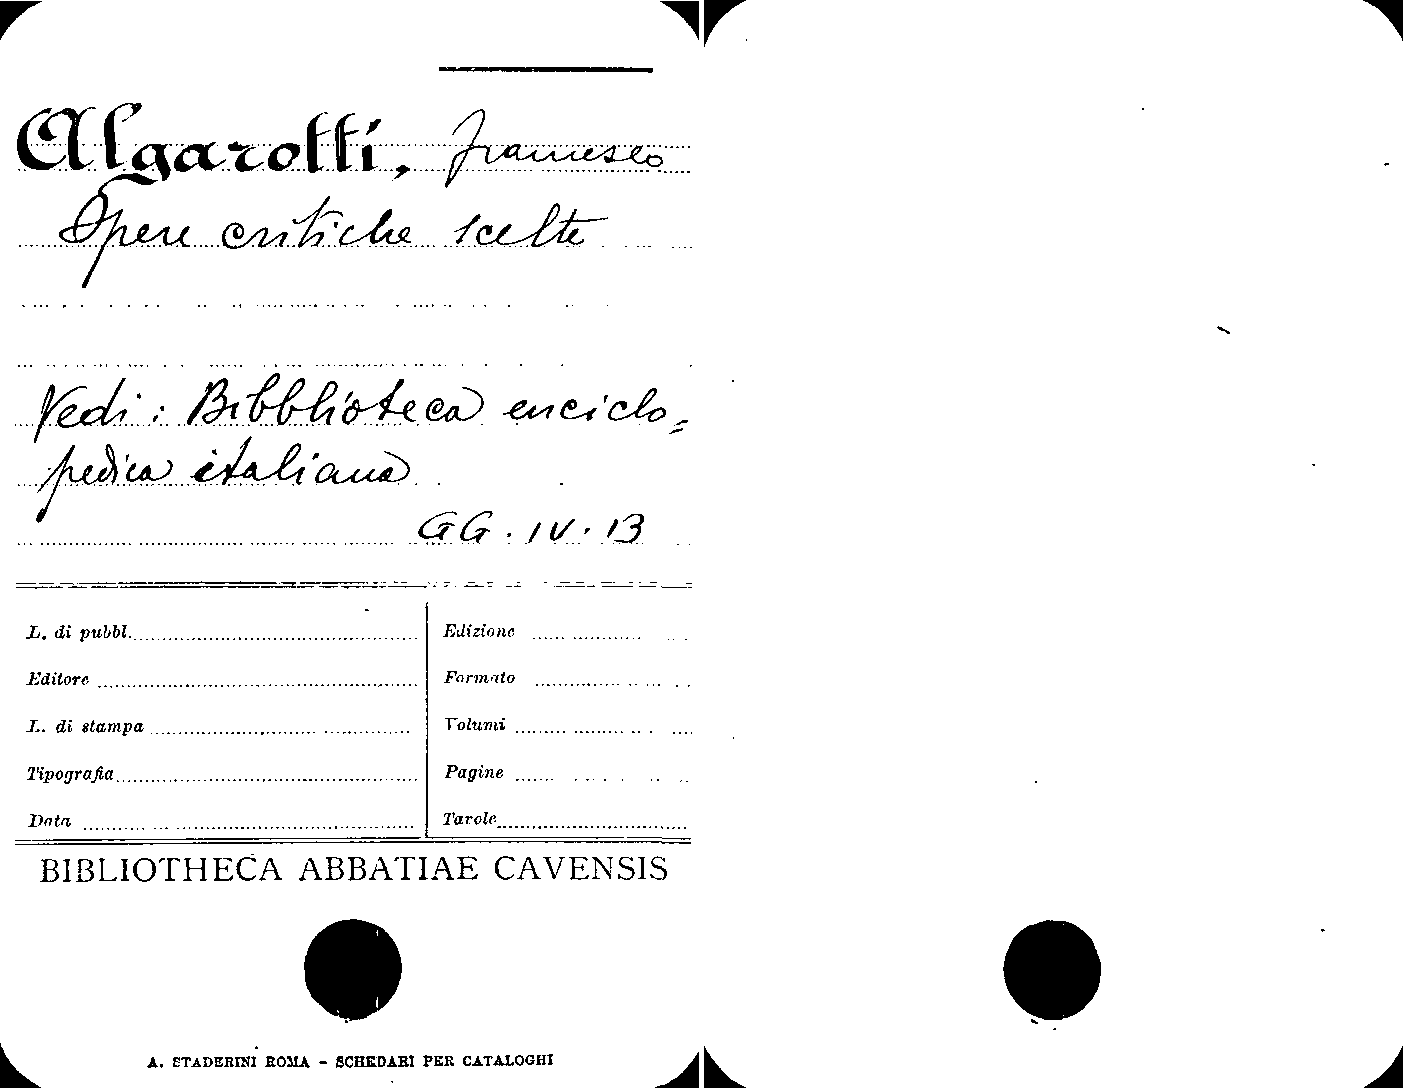 Algarotti, Francesco
Opere critiche scelte
Vedi: Bibblioteca enciclo=
pedica italiana
GG. IV. 13
L. di pubbl.
Editore
L. di stampa
Tipografia
Data
Edizione
Formato
Volumi
Pagine
Tavole
BIBLIOTHECA ABBATIAE CAVENSIS
A. STADERINI ROMA - SCHEDARI PER CATALOGHI